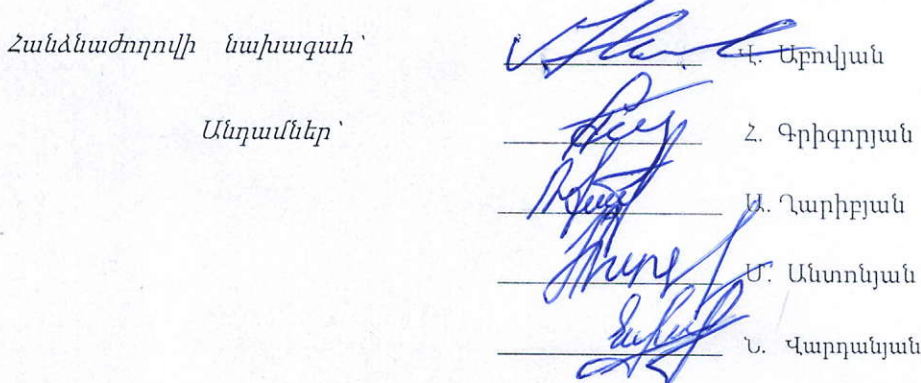 Հանձնաժողովի նախագահ՝ Վ. Աբովյան
Անդամներ՝ Հ. Գրիգորյան
Ա. Ղարիբյան
Մ. Անտոնյան
Ն. Վարդանյան